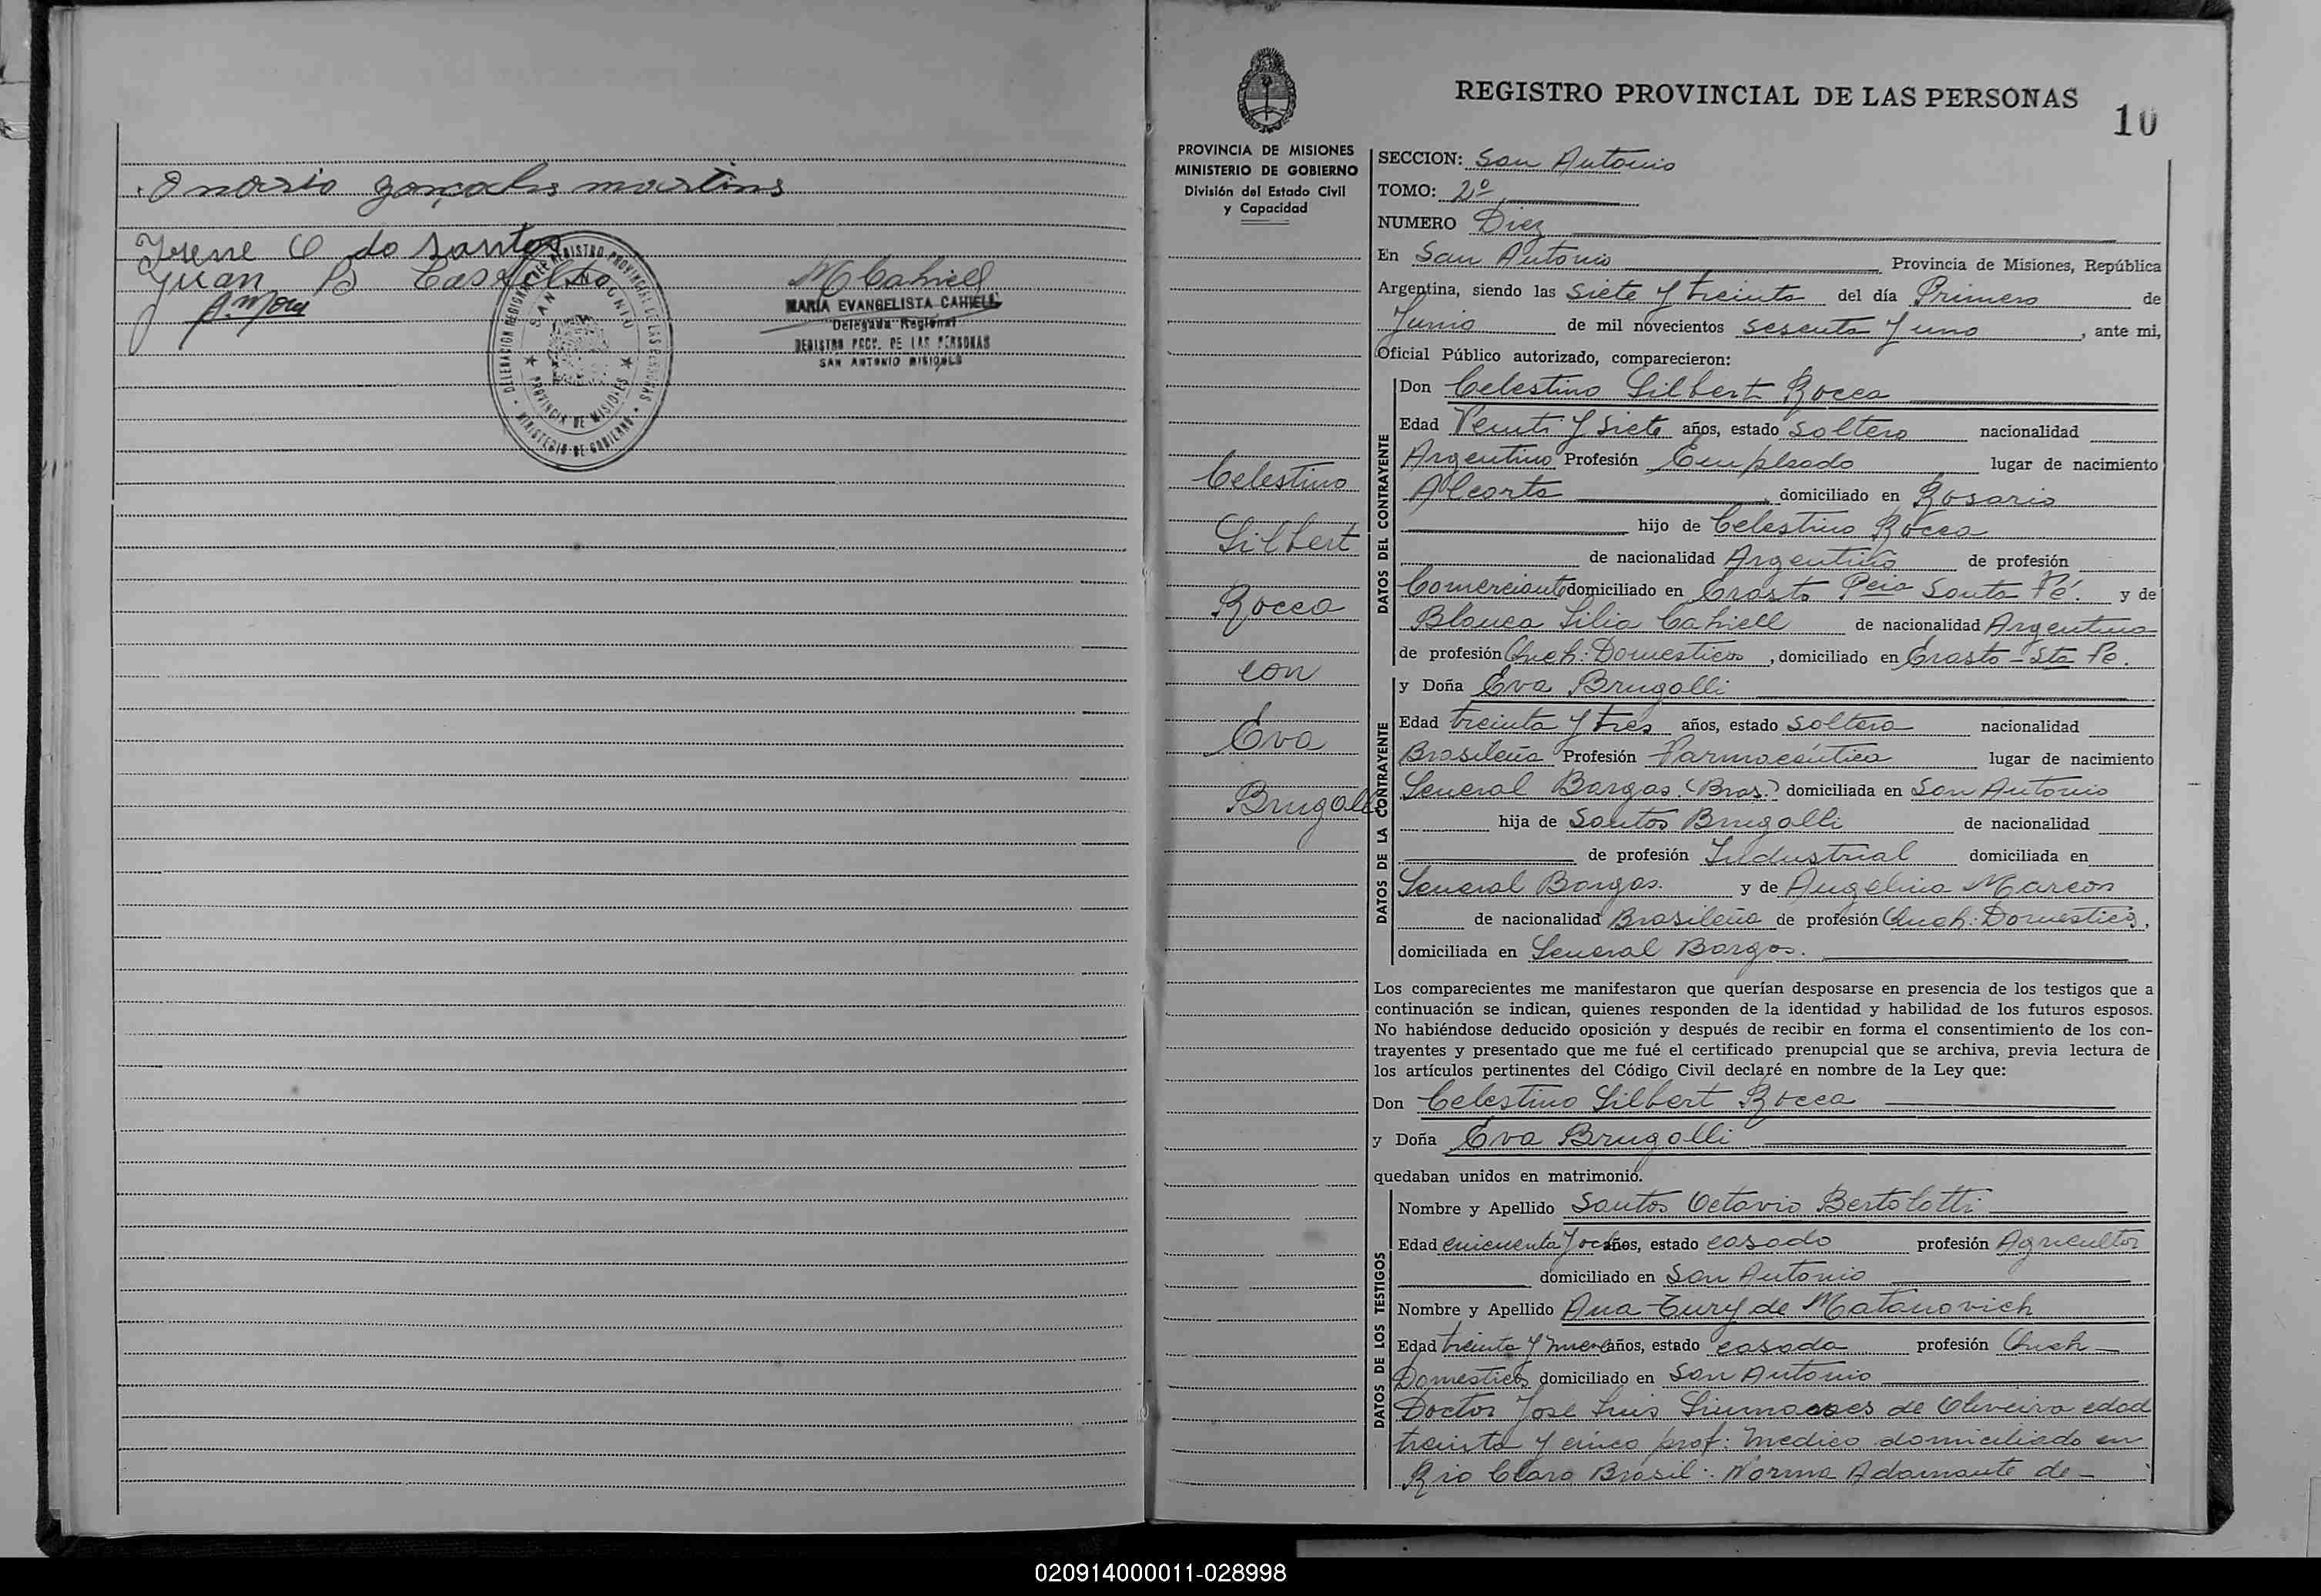 Onorio gonçales martins
Irene C do santos
Juan B Castelto
A. Mora
DELEGACION REGIONAL DEL REGISTRO PROVINCIAL DE LAS PERSONAS
SAN ANTONIO
PROVINCIA DE MISIONES
MINISTERIO DE GOBIERNO
M Cahiell
MARIA EVANGELISTA CAHIELL
Delegada Regional
REGISTRO PROV. DE LAS PERSONAS
SAN ANTONIO MISIONES
REGISTRO PROVINCIAL DE LAS PERSONAS
10
PROVINCIA DE MISIONES
MINISTERIO DE GOBIERNO
División del Estado Civil
y Capacidad
Celestino
Gilbert
Rocca
con
Eva
Brugalli
SECCION: San Antonio
TOMO: 2º
NUMERO Diez
En San Antonio Provincia de Misiones, República
Argentina, siendo las Siete y treinta del día Primero de
Junio de mil novecientos sesenta y uno, ante mi,
Oficial Público autorizado, comparecieron:
DATOS DEL CONTRAYENTE
Don Celestino Gilbert Rocca
Edad Veinti y siete años, estado soltero nacionalidad
Argentino Profesión Empleado lugar de nacimiento
Alcorta, domiciliado en Rosario
hijo de Celestino Rocca
de nacionalidad Argentina de profesión
Comerciante domiciliado en Erasto Pcia Santa Fé. y de
Blanca Lilia Cahiell de nacionalidad Argentina
de profesión Queh: Domesticos, domiciliado en Erasto - Sta Fe.
DATOS DE LA CONTRAYENTE
y Doña Eva Brugalli
Edad treinta y tres años, estado soltera nacionalidad
Brasileña Profesión Farmacéutica lugar de nacimiento
General Bargas (Bras.) domiciliada en San Antonio
hija de Santos Brugalli de nacionalidad
de profesión Industrial domiciliada en
General Bargas. y de Angelina Marcon
de nacionalidad Brasileña de profesión Queh: Domesticos,
domiciliada en General Bargas.
Los comparecientes me manifestaron que querían desposarse en presencia de los testigos que a
continuación se indican, quienes responden de la identidad y habilidad de los futuros esposos.
No habiéndose deducido oposición y después de recibir en forma el consentimiento de los con-
trayentes y presentado que me fué el certificado prenupcial que se archiva, previa lectura de
los artículos pertinentes del Código Civil declaré en nombre de la Ley que:
Don Celestino Gilbert Rocca
y Doña Eva Brugalli
quedaban unidos en matrimonio.
DATOS DE LOS TESTIGOS
Nombre y Apellido Santos Octavio Bertolotti
Edad cincuenta y ocho años, estado casado profesión Agricultor
domiciliado en San Antonio
Nombre y Apellido Ana Tury de Matanovich
Edad treinta y nueve años, estado casada profesión Queh -
Domesticos domiciliado en San Antonio
Doctor José Luis de Oliveira edad
treinta y cinco prof: medico domiciliado en
Rio Claro Brasil: Norma Adamante de -
020914000011-028998